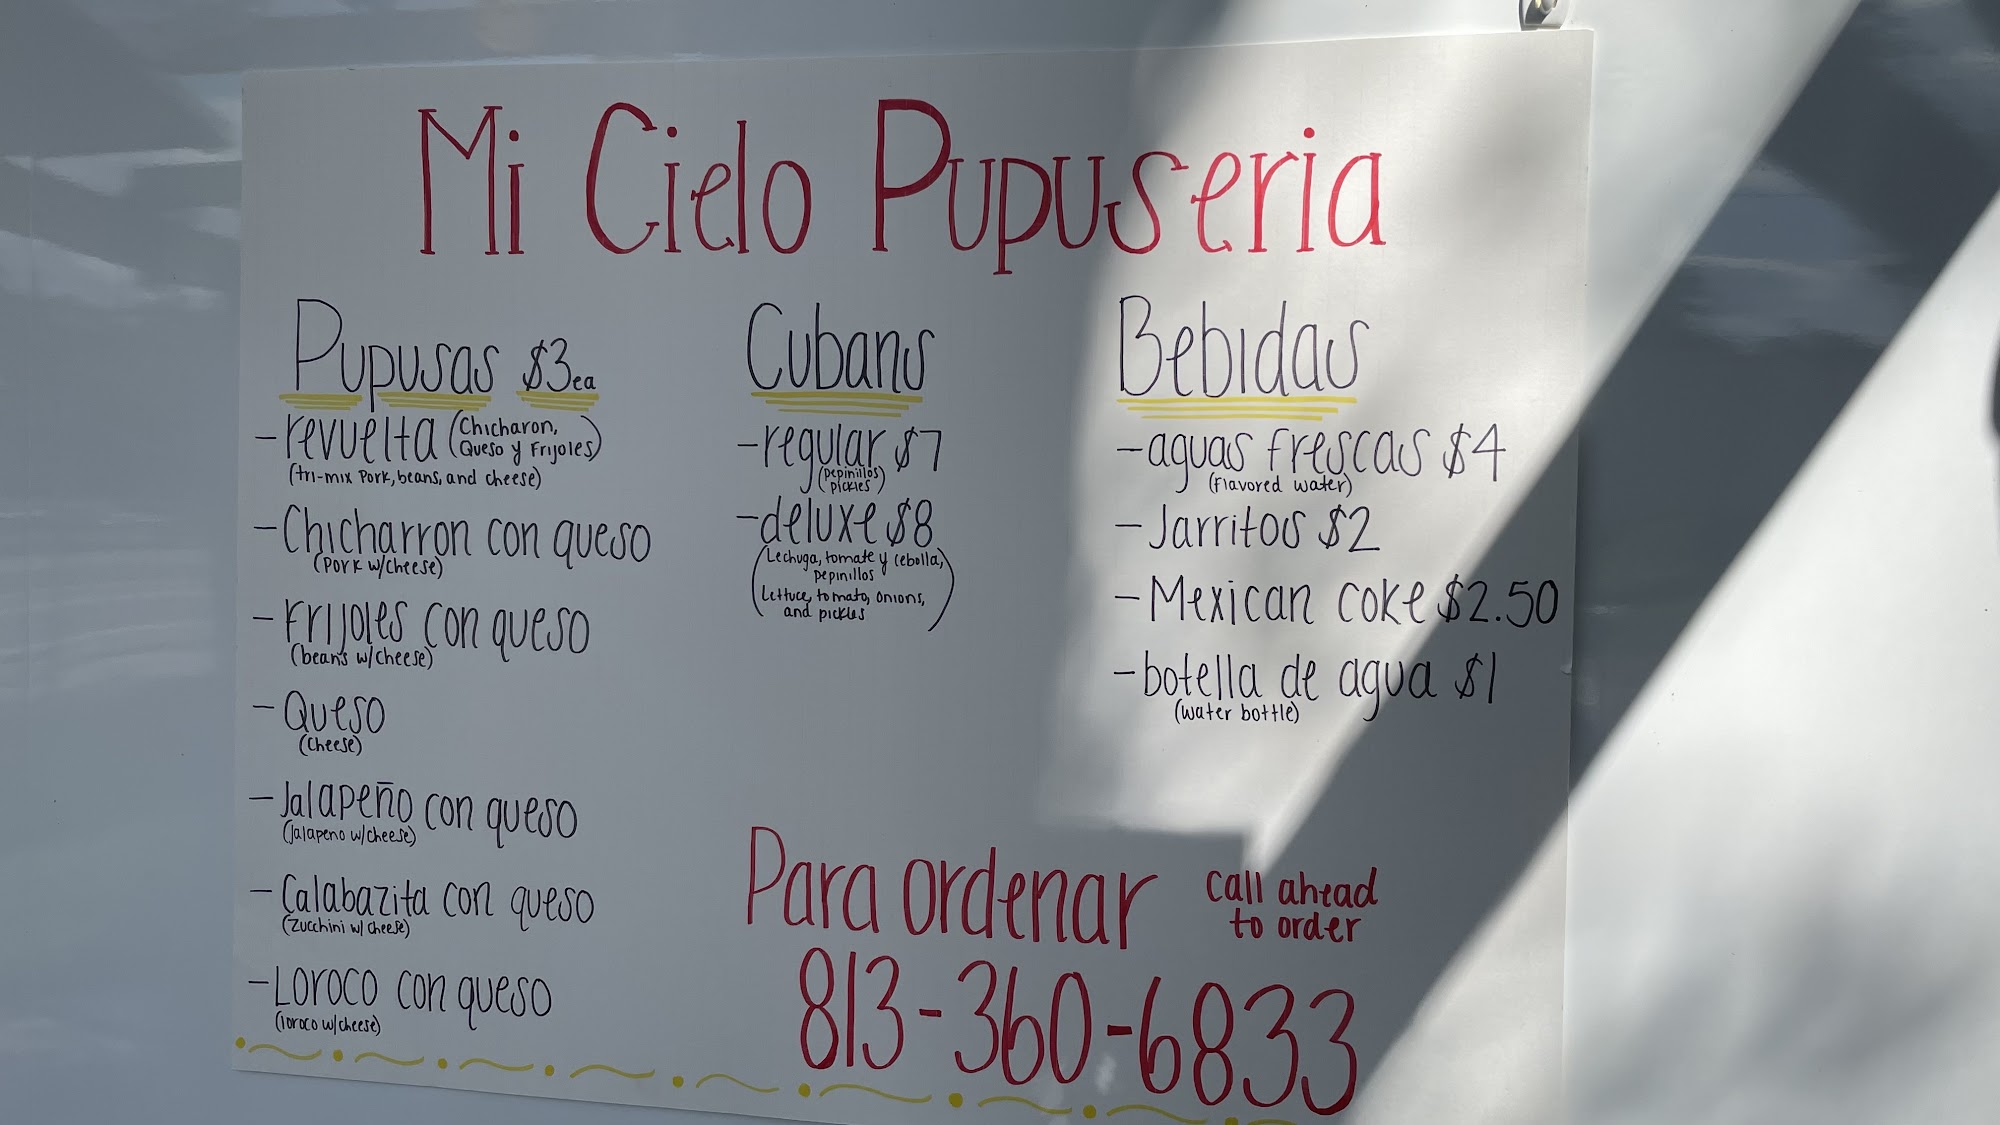 Mi Cielo Pupuseria
Pupusas $3ea
- revuelta (Chicharon,
Queso y Frijoles)
(tri-mix Pork, beans, and cheese)
- Chicharron con queso
(Pork w/cheese)
- Frijoles con queso
(beans w/cheese)
- Queso
(cheese)
- Jalapeño con queso
(Jalapeno w/cheese)
- Calabazita con queso
(Zucchini w/cheese)
- Loroco con queso
(loroco w/cheese)
Cubans
- regular $7
(pepinillos
pickles)
- deluxe $8
(Lechuga, tomate y cebolla,
pepinillos
Lettuce, tomato, onions,
and pickles)
Bebidas
- aguas frescas $4
(flavored water)
- Jarritos $2
- Mexican coke $2.50
- botella de agua $1
(water bottle)
Para ordenar
call ahead
to order
813-360-6833